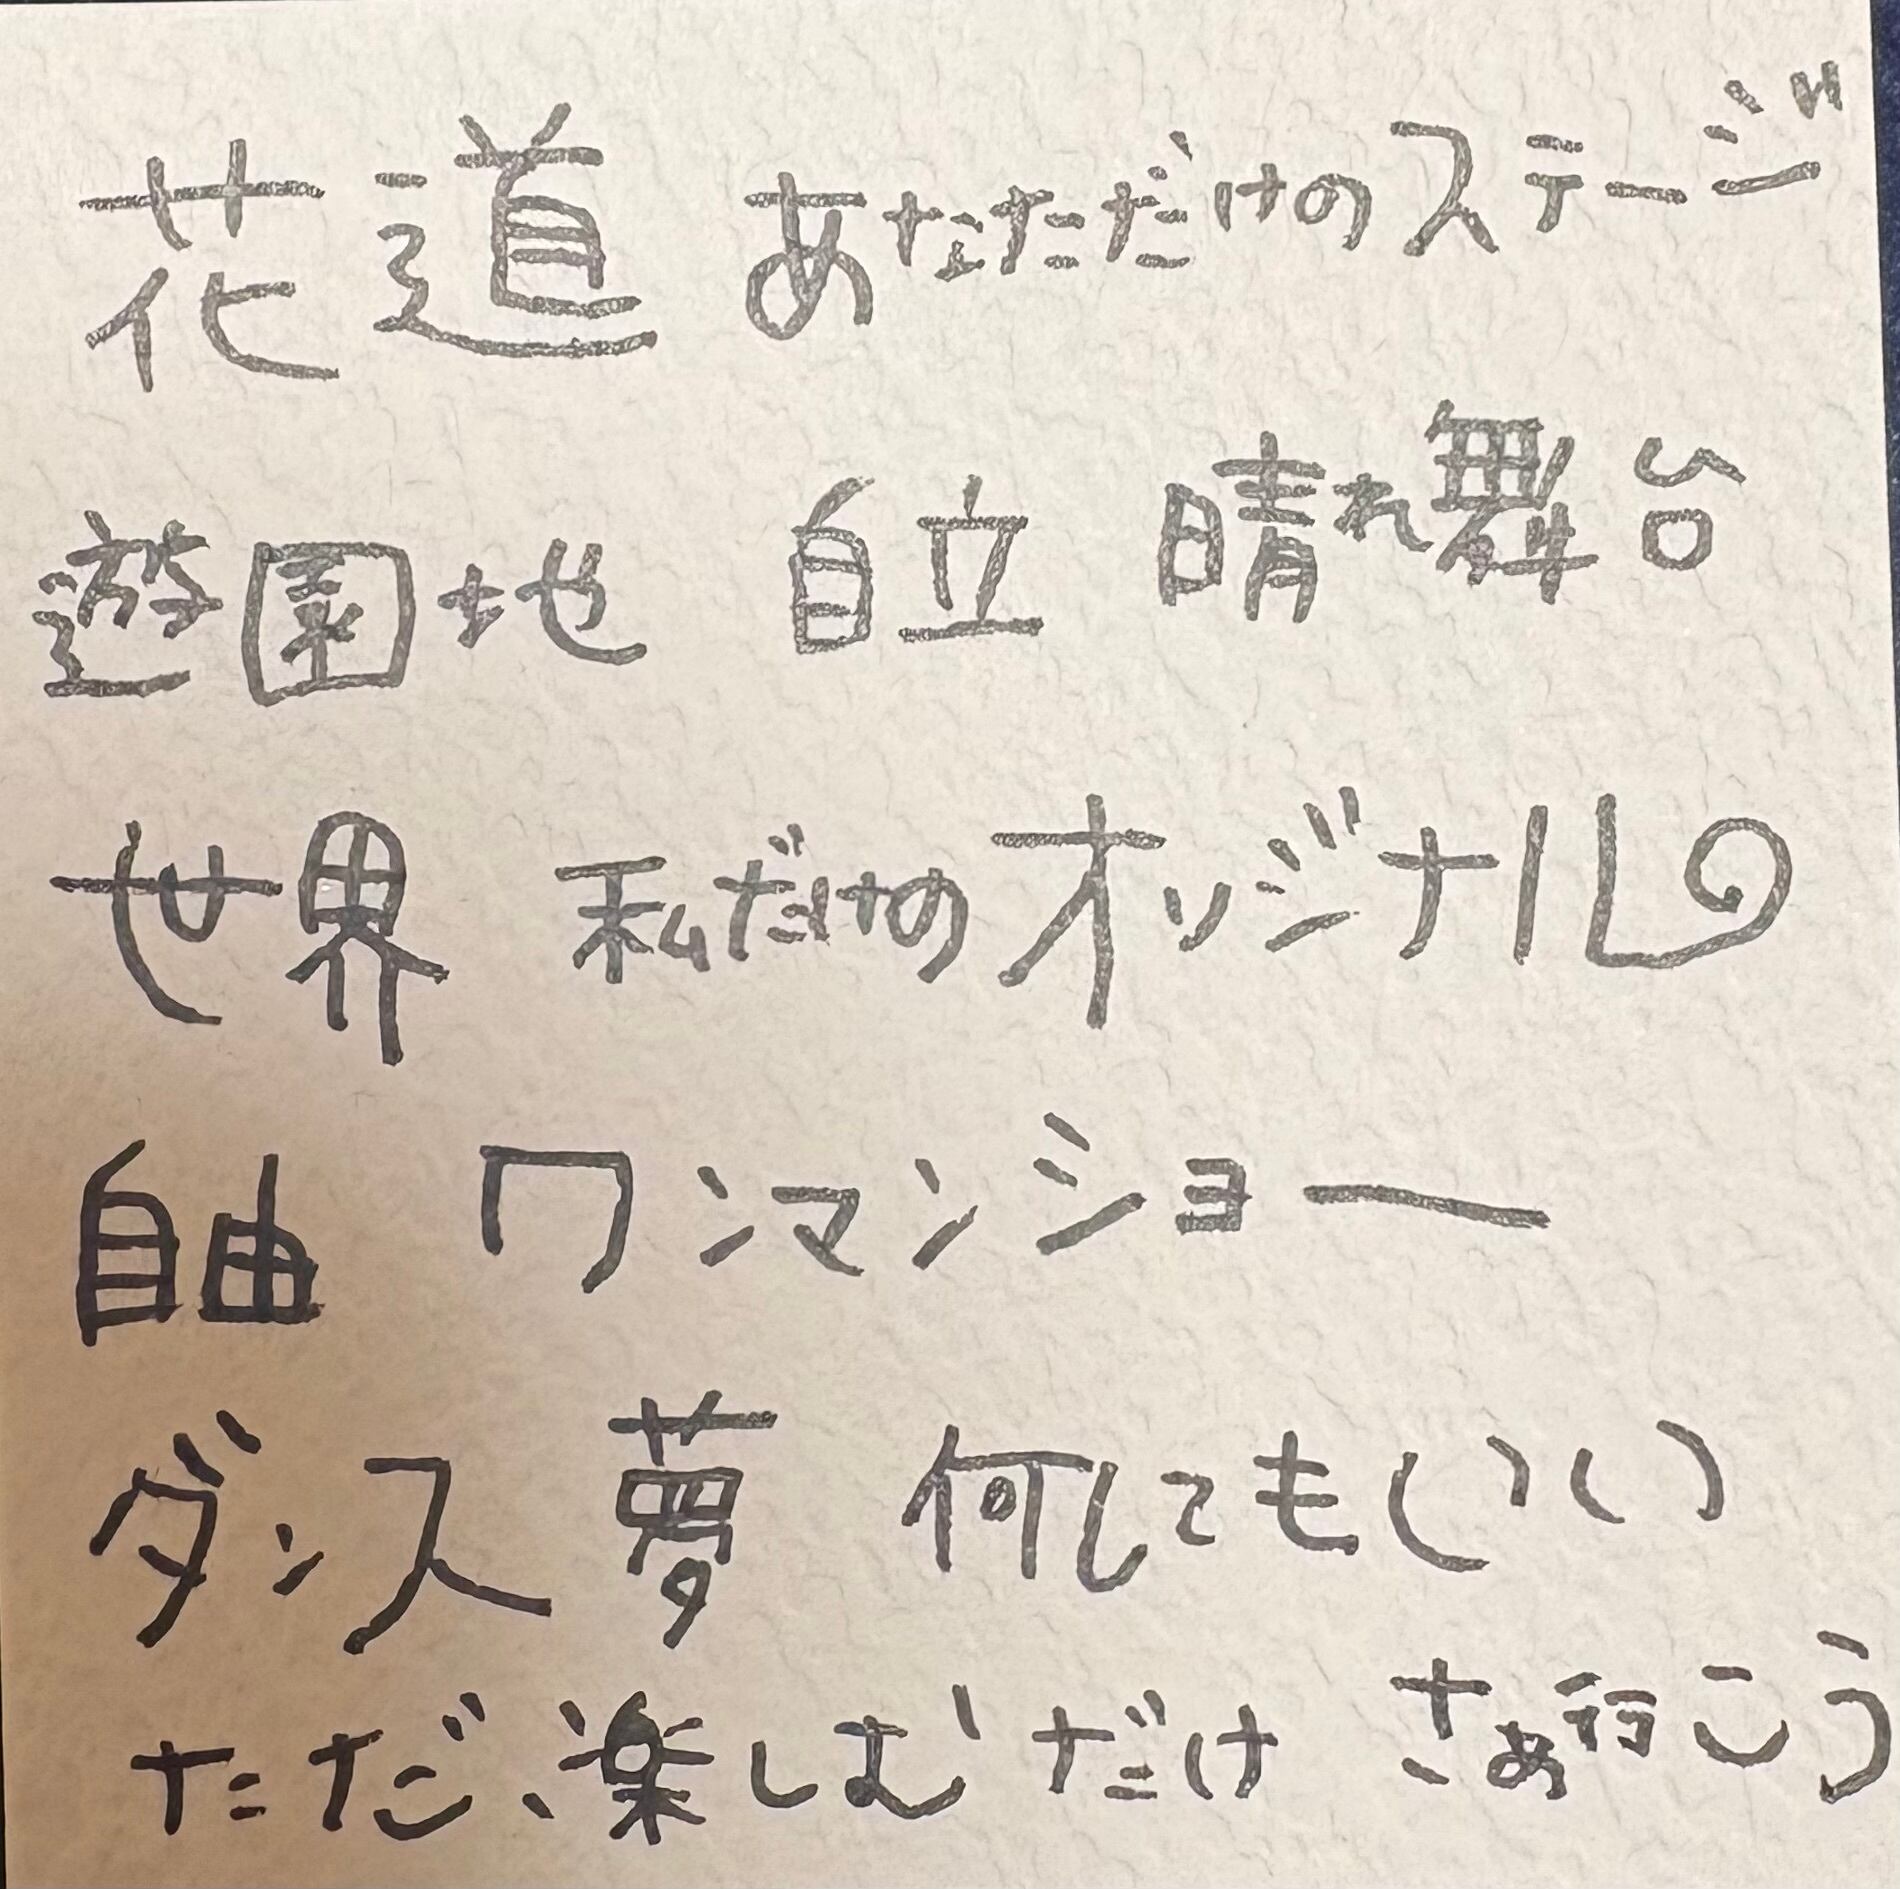 花道 あなただけのステージ
遊園地 自立 晴れ舞台
世界 私だけのオリジナルの
自由 ワンマンショー
ダンス 夢 何してもいい
ただ、楽しむだけ さぁ行こう